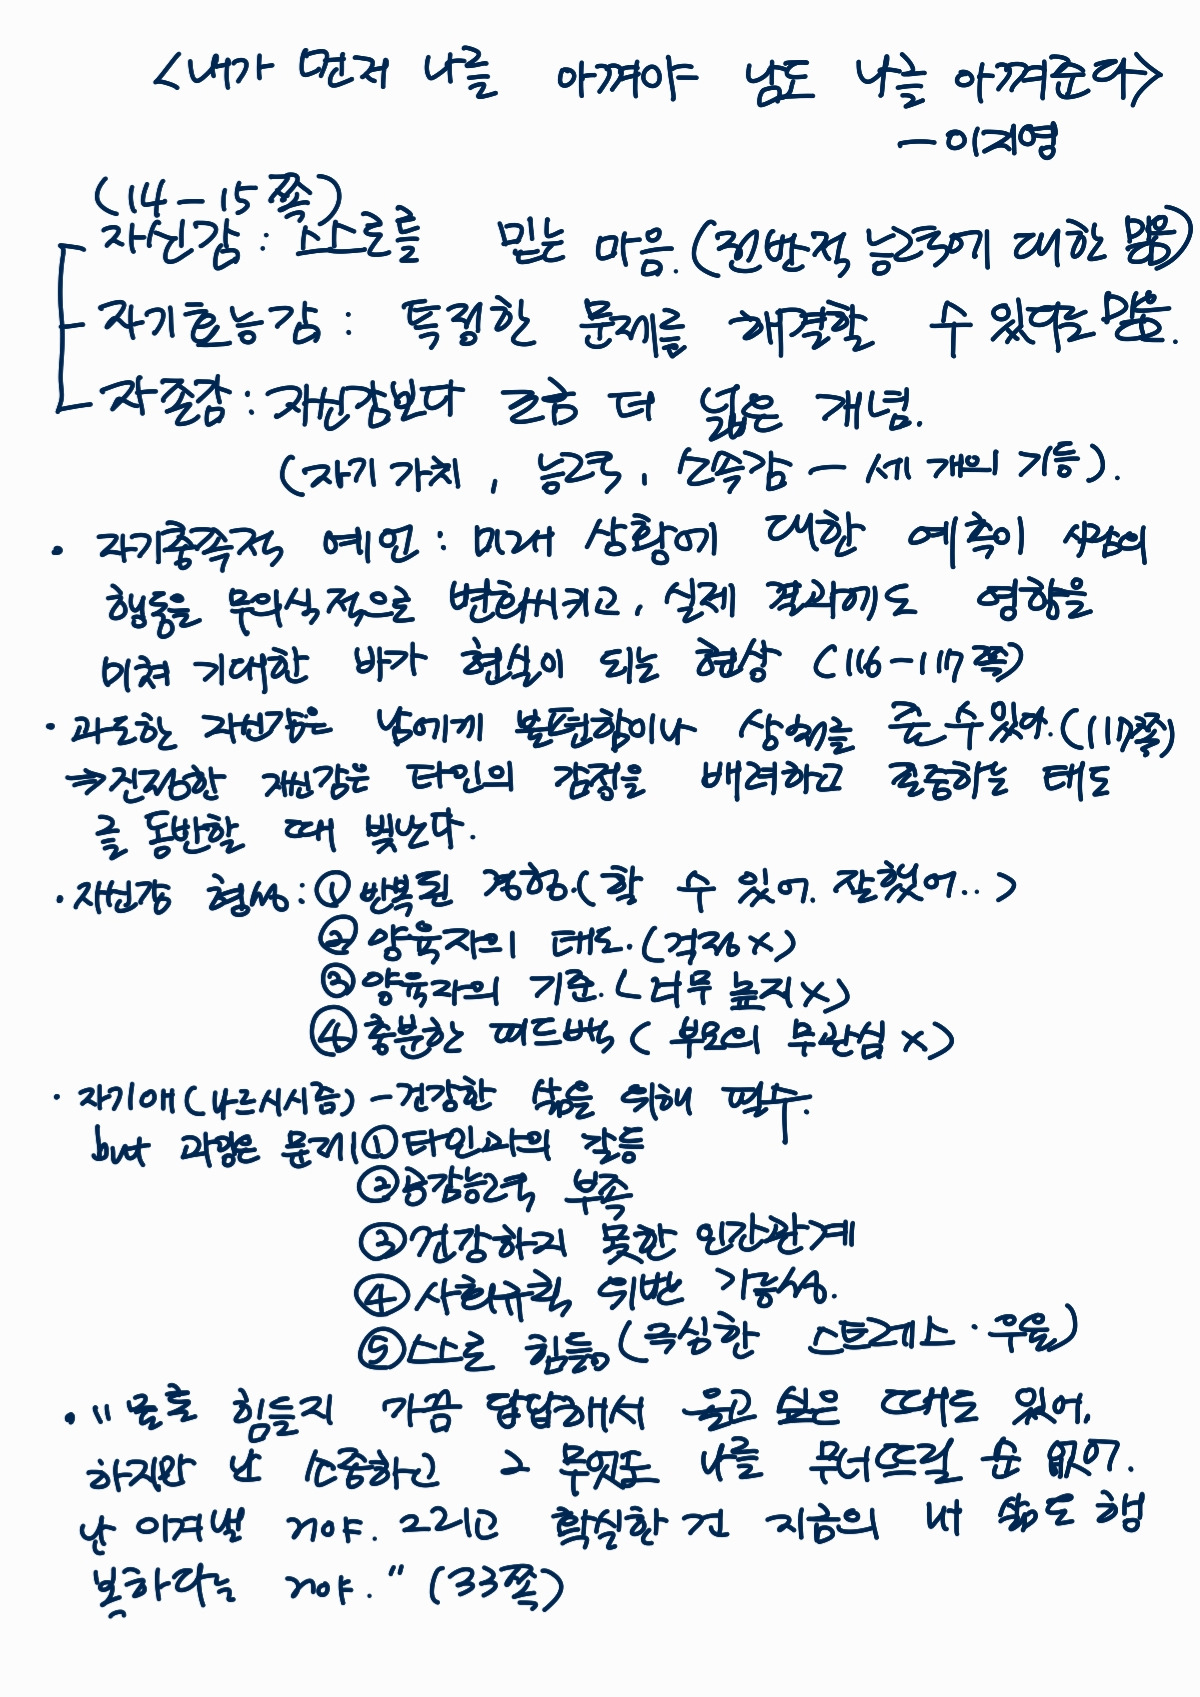 <내가 먼저 나를 아껴야 남도 나를 아껴준다>
- 이지영
(14-15쪽)
자신감 : 스스로를 믿는 마음. (전반적 능력에 대한 믿음)
자기효능감 : 특정한 문제를 해결할 수 있다는 믿음.
자존감 : 자신감보다 조금 더 넓은 개념.
(자기 가치, 능력, 소속감 - 세 개의 기둥).
• 자기충족적 예언 : 미래 상황에 대한 예측이 사람의
행동을 무의식적으로 변화시키고, 실제 결과에도 영향을
미쳐 기대한 바가 현실이 되는 현상 (116-117쪽)
• 과도한 자신감은 남에게 불편함이나 상처를 줄 수 있다. (117쪽)
⇒ 진정한 자신감은 타인의 감정을 배려하고 존중하는 태도
를 동반할 때 빛난다.
• 자신감 형성 : ① 반복된 경험. (할 수 있어. 잘했어..)
② 양육자의 태도. (걱정 x)
③ 양육자의 기준. (너무 높지 x)
④ 충분한 피드백 (부모의 무관심 x)
• 자기애 (나르시시즘) - 건강한 삶을 위해 필수.
but 과잉은 문제! ① 타인과의 갈등
② 공감능력 부족
③ 건강하지 못한 인간관계
④ 사회규칙 위반 가능성.
⑤ 스스로 힘듦. (극심한 스트레스·우울)
• "물론 힘들지 가끔 답답해서 울고 싶은 때도 있어.
하지만 난 소중하고 그 무엇도 나를 무너뜨릴 순 없어.
난 이겨낼 거야. 그리고 확실한 건 지금의 내 삶도 행
복하다는 거야." (33쪽)